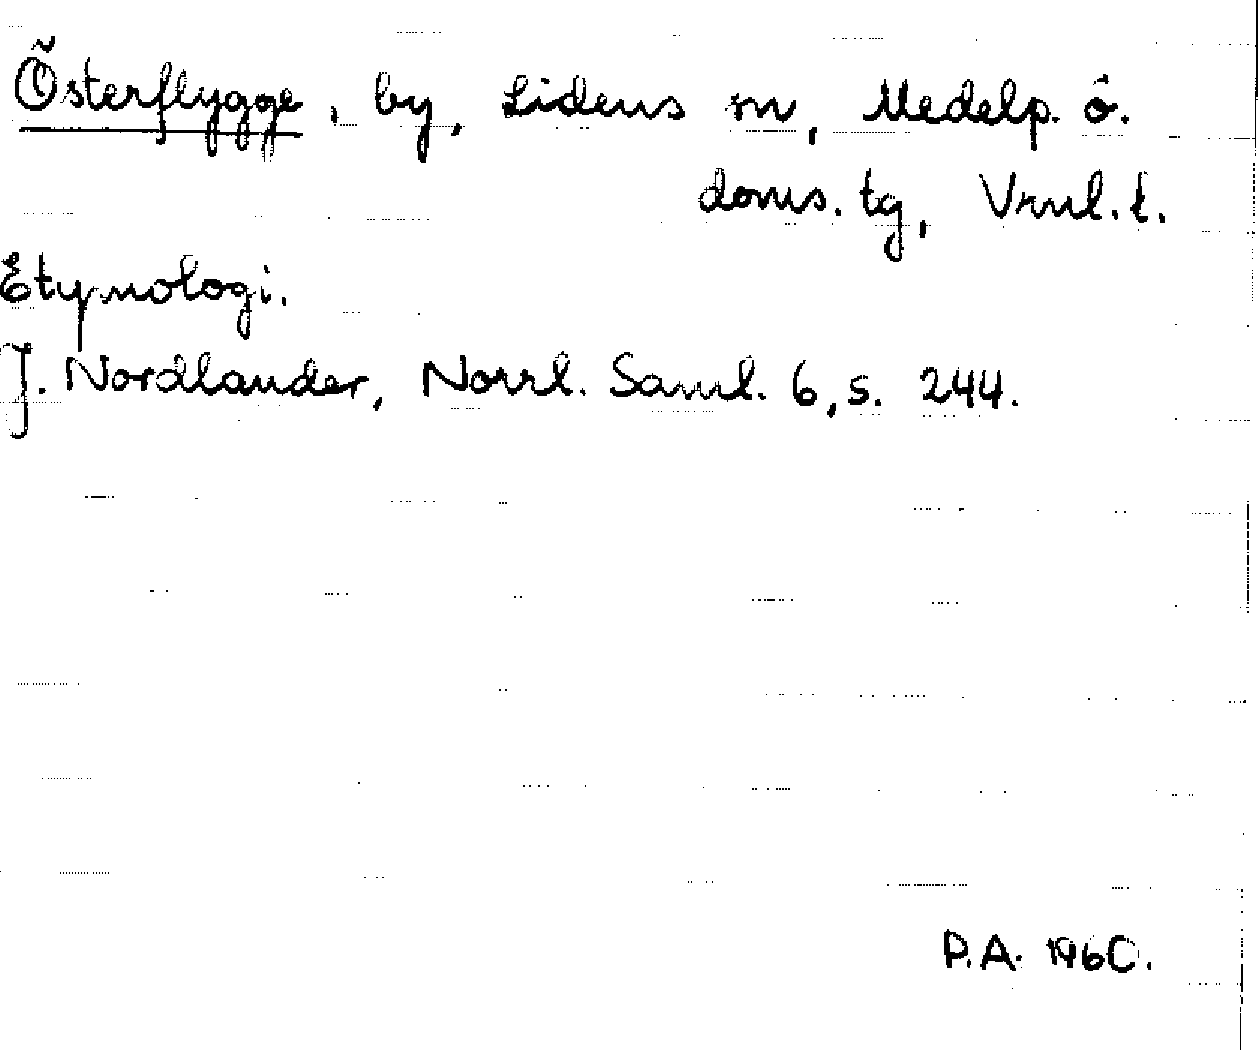 Österflygge, by, Lidens sn, Medelp. ö.
doms. tg, Vrnl. l.
Etymologi.
J. Nordlander, Norrl. Saml. 6, s. 244.
P.A. 1960.